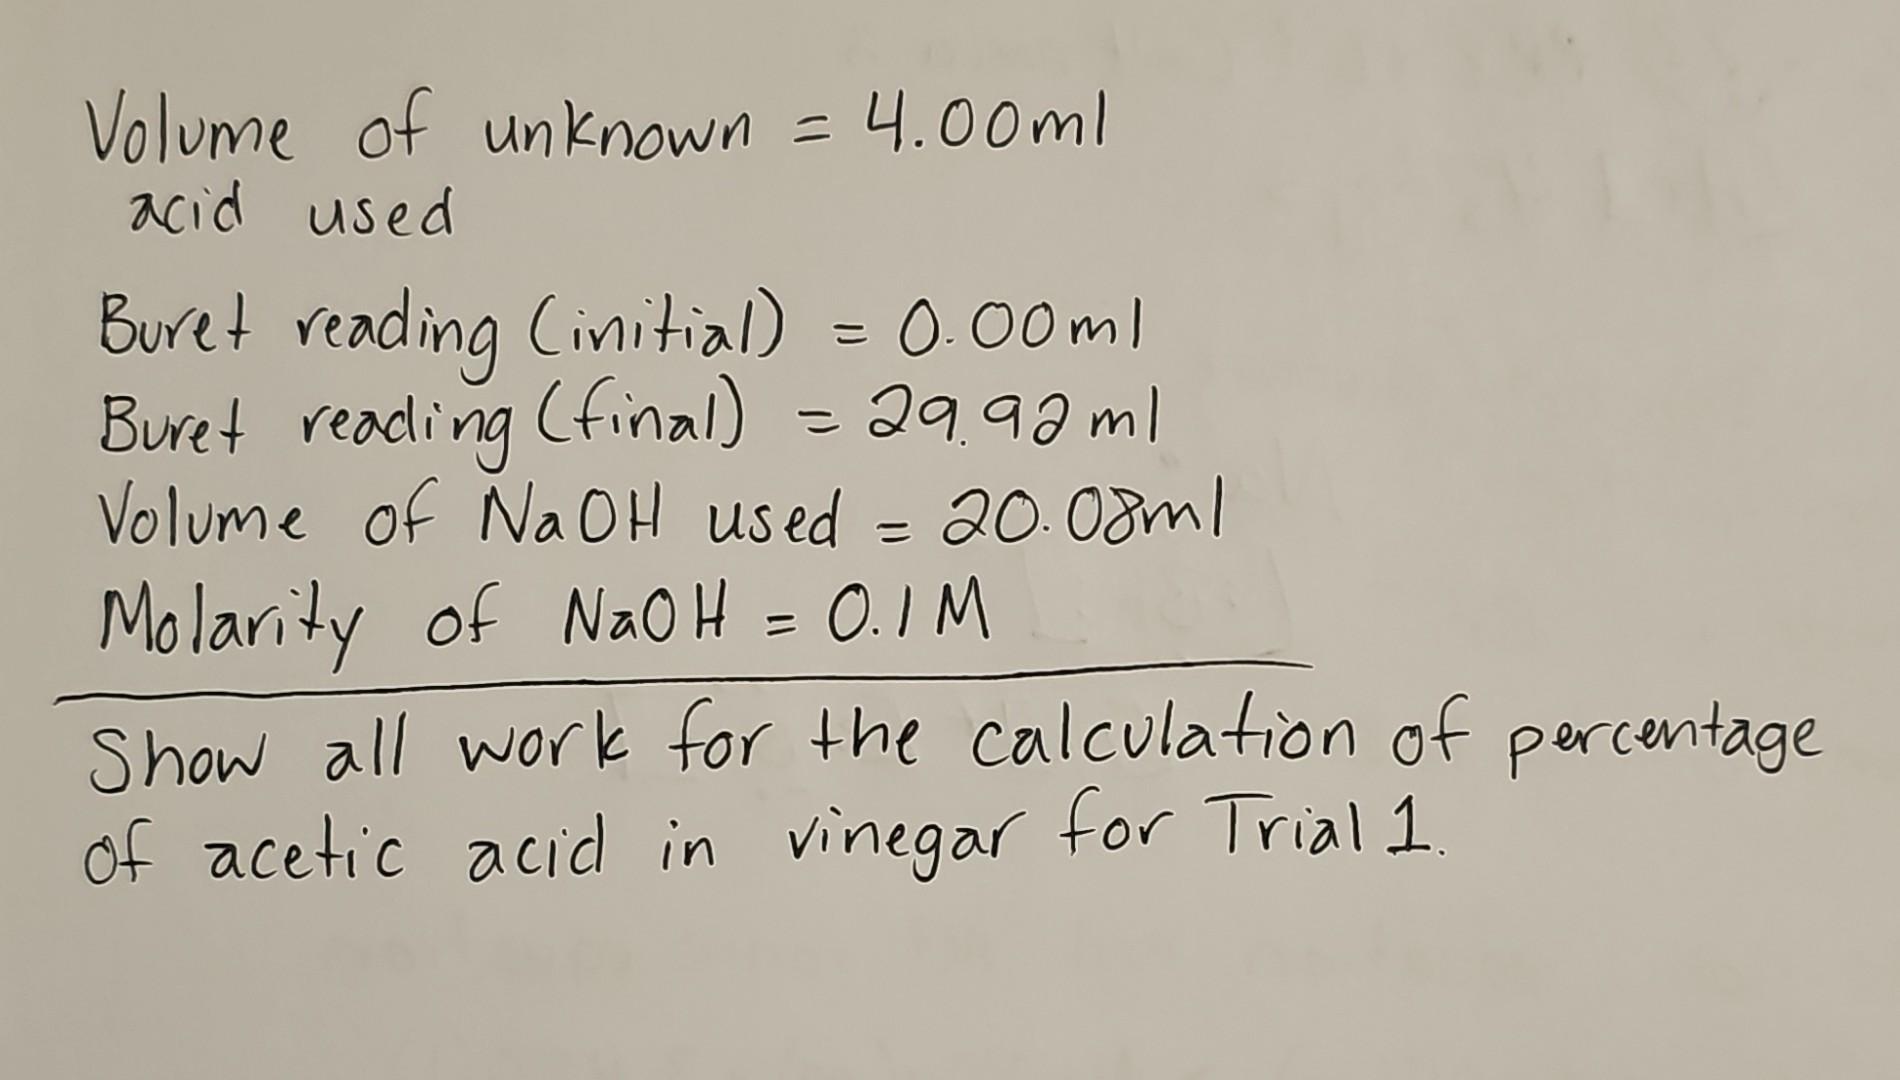 Volume of unknown = 4.00ml
acid used
Buret reading (initial) = 0.00ml
Buret reading (final) = 29.92ml
Volume of NaOH used = 20.08ml
Molarity of NaOH = 0.1M
Show all work for the calculation of percentage
of acetic acid in vinegar for Trial 1.